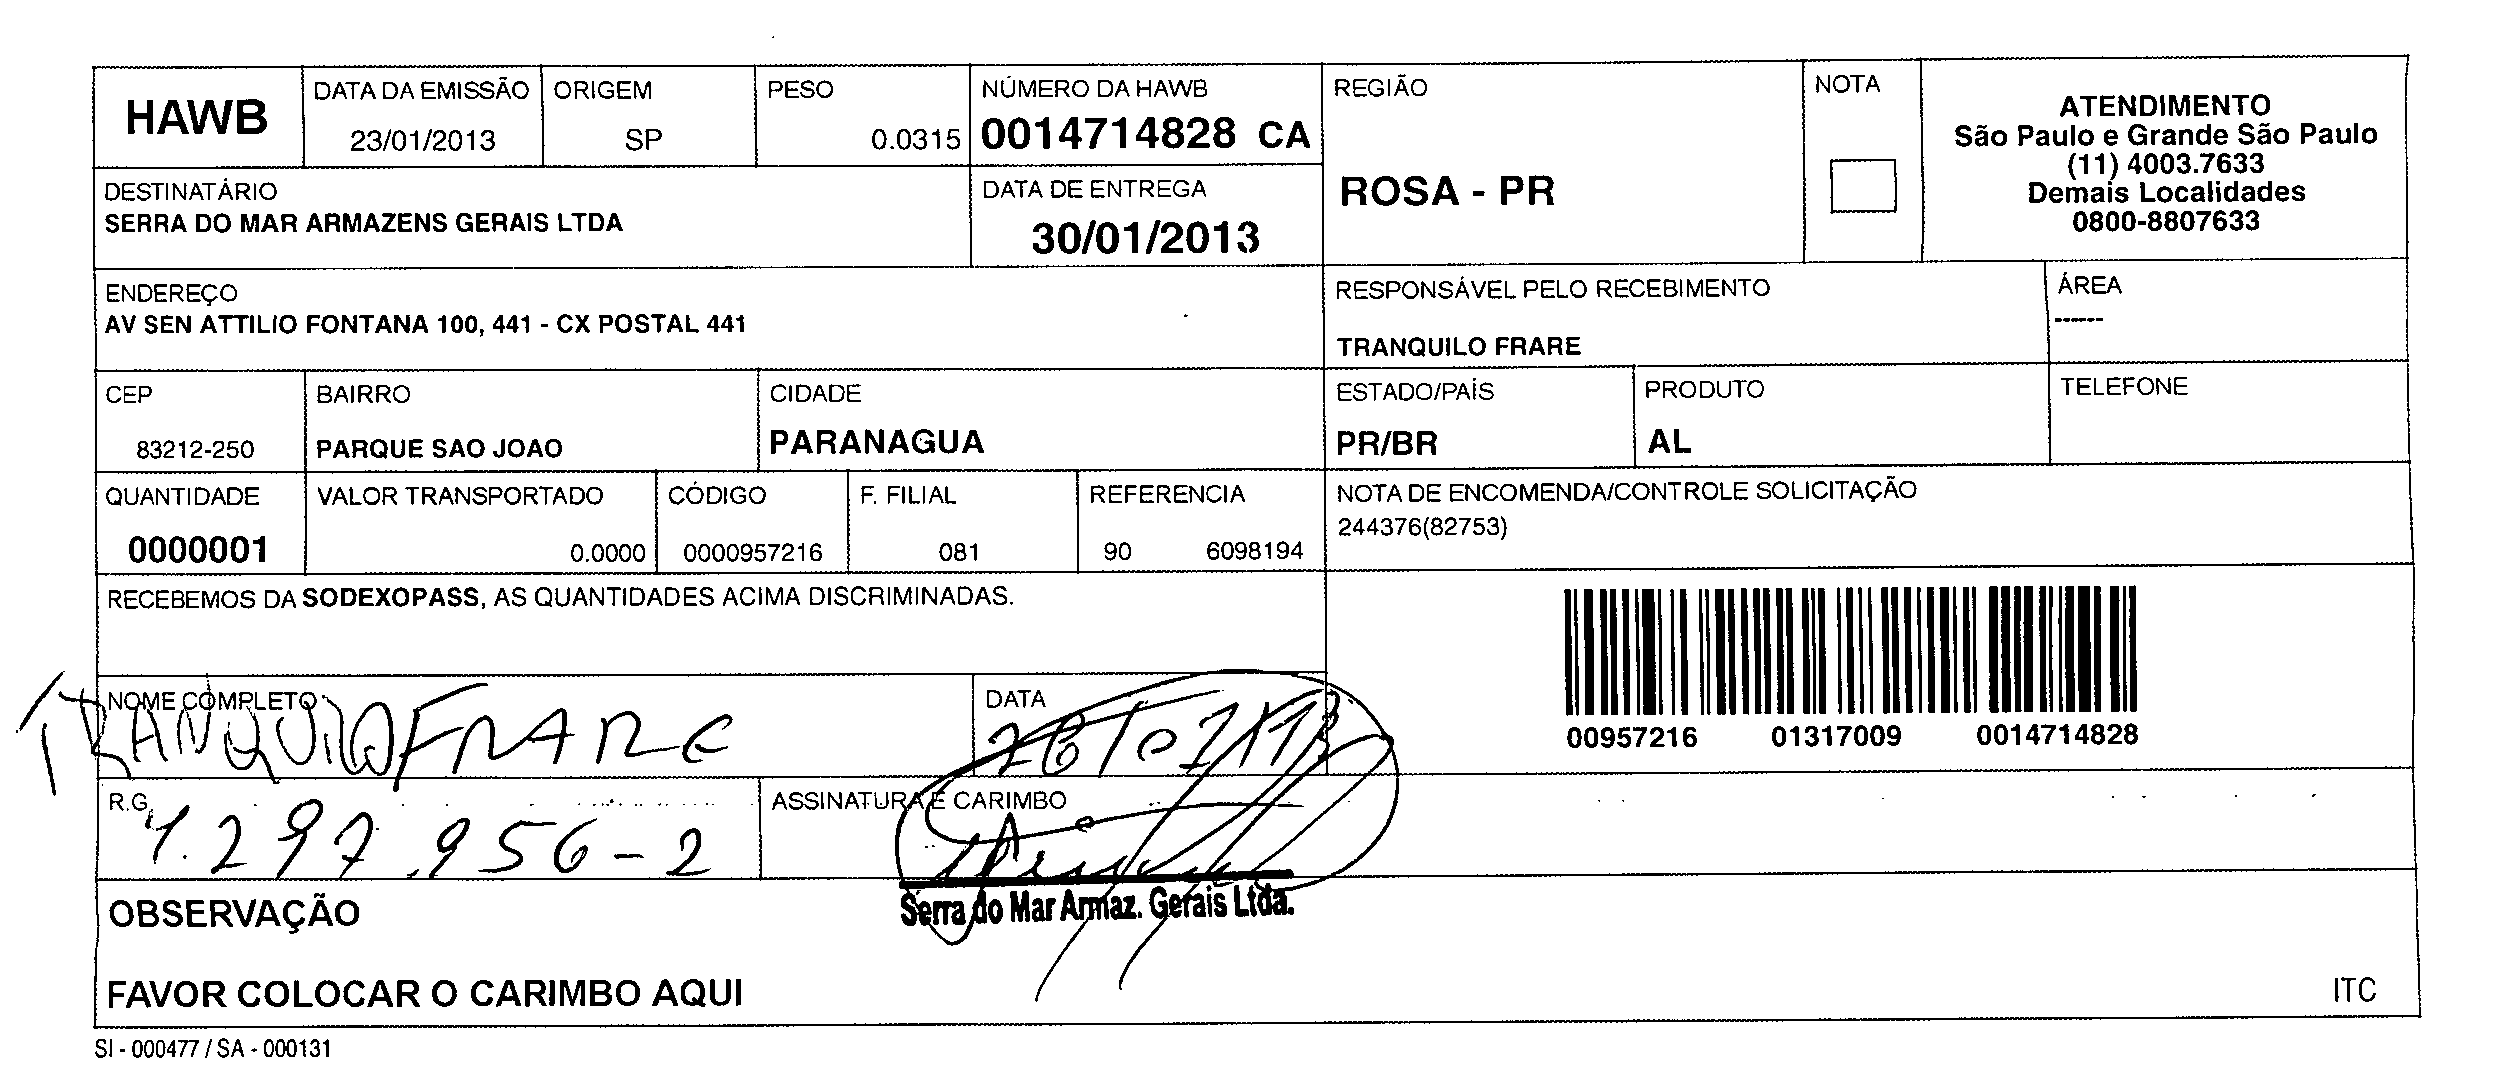 HAWB
DATA DA EMISSÃO
23/01/2013
ORIGEM
SP
PESO
0.0315
NÚMERO DA HAWB
0014714828 CA
REGIÃO
ROSA - PR
NOTA
ATENDIMENTO
São Paulo e Grande São Paulo
(11) 4003.7633
Demais Localidades
0800-8807633
DESTINATÁRIO
SERRA DO MAR ARMAZENS GERAIS LTDA
DATA DE ENTREGA
30/01/2013
ENDEREÇO
AV SEN ATTILIO FONTANA 100, 441 - CX POSTAL 441
RESPONSÁVEL PELO RECEBIMENTO
TRANQUILO FRARE
ÁREA
------
CEP
83212-250
BAIRRO
PARQUE SAO JOAO
CIDADE
PARANAGUA
ESTADO/PAÍS
PR/BR
PRODUTO
AL
TELEFONE
QUANTIDADE
0000001
VALOR TRANSPORTADO
0.0000
CÓDIGO
0000957216
F. FILIAL
081
REFERENCIA
90 6098194
NOTA DE ENCOMENDA/CONTROLE SOLICITAÇÃO
244376(82753)
RECEBEMOS DA SODEXOPASS, AS QUANTIDADES ACIMA DISCRIMINADAS.
00957216 01317009 0014714828
NOME COMPLETO
TRANQUILO FRARE
DATA
R.G.
297.956-2
ASSINATURA E CARIMBO
Serra do Mar Armaz. Gerais Ltda.
OBSERVAÇÃO
FAVOR COLOCAR O CARIMBO AQUI
ITC
SI - 000477 / SA - 000131